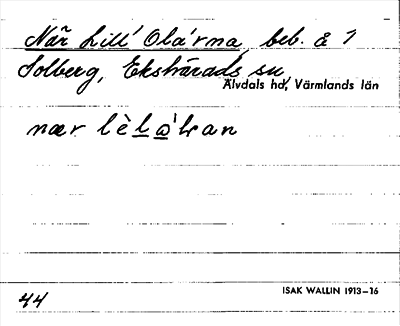 När Lill Olárna, beb. å 1
Solberg, Ekshärads sn,
Älvdals hd, Värmlands län
nær lèlo̱'ɬan
ISAK WALLIN 1913–16
44